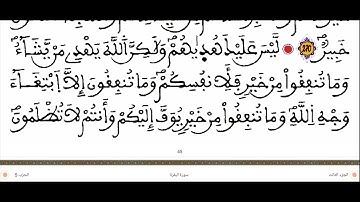 خَبِيرٌۖ 270 لَّيْسَ عَلَيْكَ هُد۪يٰهُمْ وَلَٰكِنَّ اَ۬للَّهَ يَهْدِے مَنْ يَّشَآءُۖ
وَمَا تُنفِقُواْ مِنْ خَيْرٖ فَلِأَنفُسِكُمْۖ وَمَا تُنفِقُونَ إِلَّا اَ۪بْتِغَآءَ
وَجْهِ اِ۬للَّهِۖ وَمَا تُنفِقُواْ مِنْ خَيْرٖ يُوَفَّ إِلَيْكُمْ وَأَنتُمْ لَا تُظْلَمُونَۖ
الجزء الثالث سورة البقرة الحزب 5